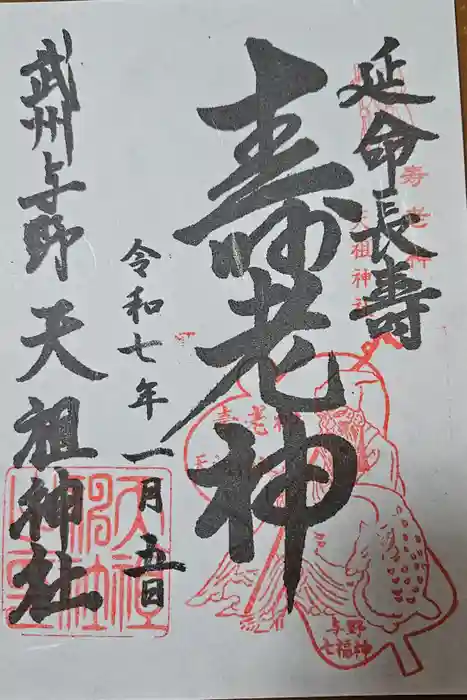 延命長寿
寿老神
天祖神社
寿老神
令和七年一月五日
武州与野 天祖神社
与野
七福神